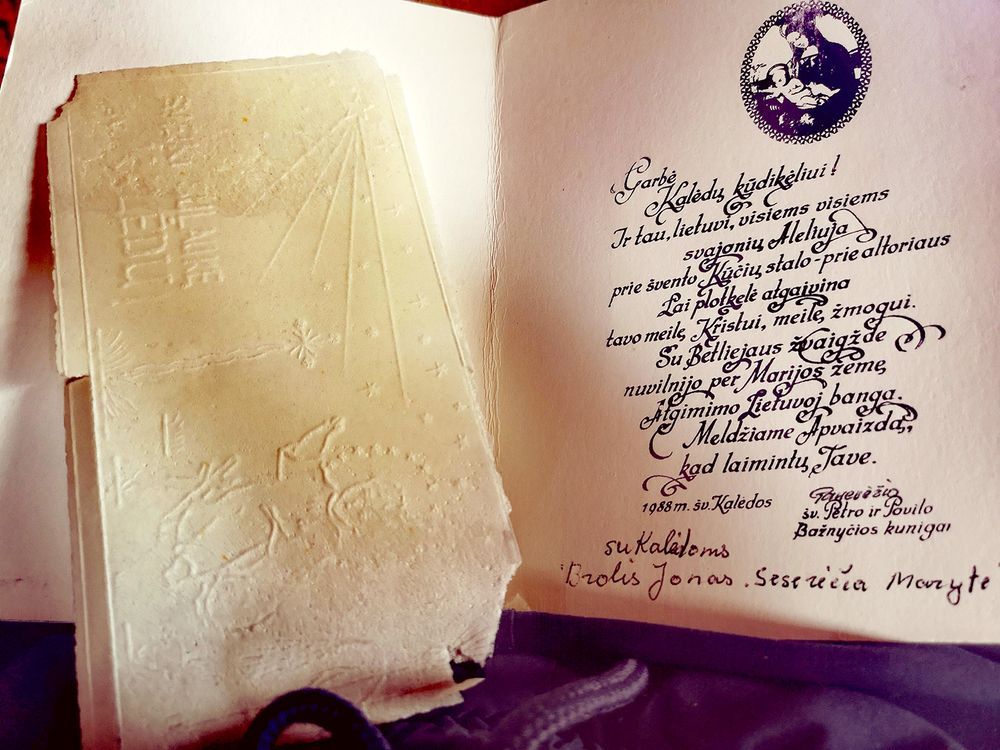 Garbė
Kalėdų kūdikėliui!
Ir tau, lietuvi, visiems visiems
svajonių Aleliuja
prie švento Kūčių stalo-prie altoriaus
Lai plotkelė atgaivina
tavo meilę Kristui, meilę žmogui.
Su Betliejaus žvaigžde
nuvilnijo per Marijos žemę
Atgimimo Lietuvoj banga.
Meldžiame Apvaizdą,
kad laimintų Tave.
1988 m. šv. Kalėdos
Panevėžio
šv. Petro ir Povilo
Bažnyčios kunigai
su Kalėdoms
Brolis Jonas. Seseričia Maryte